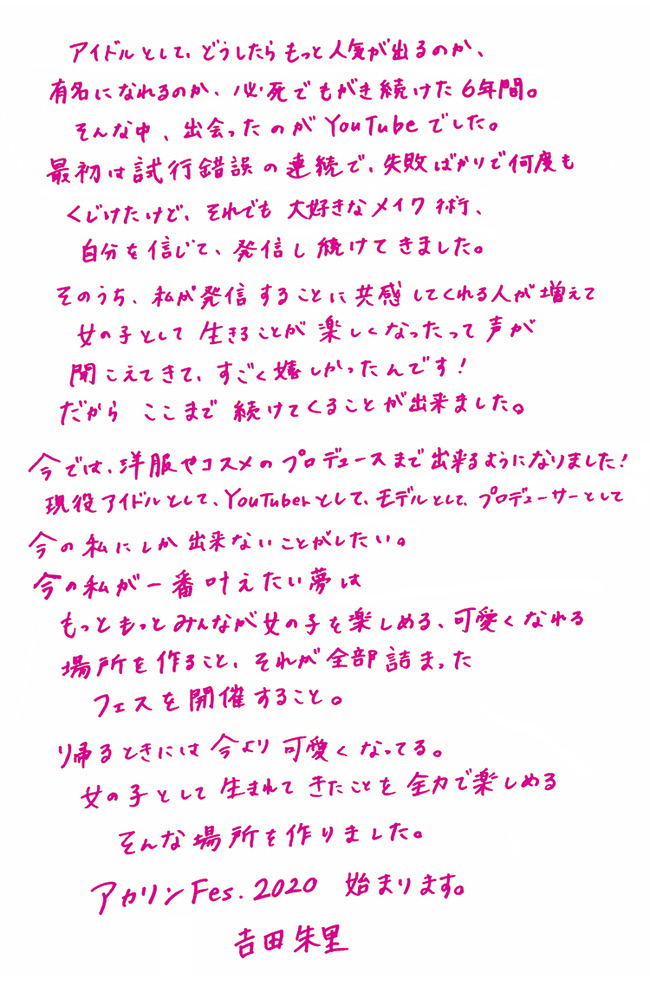 アイドルとして、どうしたらもっと人気が出るのか、
有名になれるのか、必死でもがき続けた6年間。
そんな中、出会ったのがYouTubeでした。
最初は試行錯誤の連続で、失敗ばかりで何度も
くじけたけど、それでも大好きなメイク術、
自分を信じて、発信し続けてきました。
そのうち、私が発信することに共感してくれる人が増えて
女の子として生きることが楽しくなったって声が
聞こえてきて、すごく嬉しかったんです!
だからここまで続けてくることが出来ました。
今では、洋服やコスメのプロデュースまで出来るようになりました!
現役アイドルとして、YouTuberとして、モデルとして、プロデューサーとして
今の私にしか出来ないことがしたい。
今の私が一番叶えたい夢は
もっともっとみんなが女の子を楽しめる、可愛くなれる
場所を作ること、それが全部詰まった
フェスを開催すること。
帰るときには今より可愛くなってる。
女の子として生まれてきたことを全力で楽しめる
そんな場所を作りました。
アカリンFes.2020 始まります。
吉田朱里